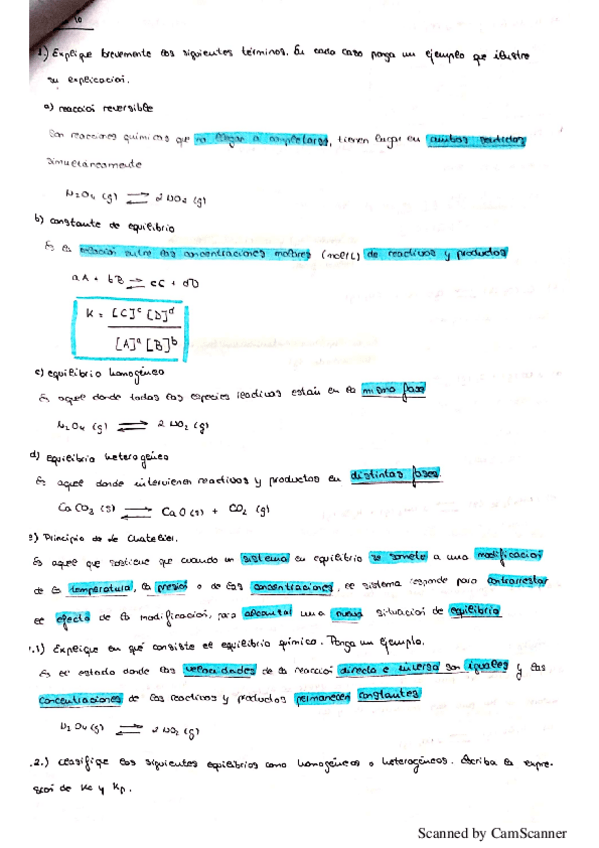 1.) Explique brevemente los siguientes términos. En cada caso ponga un ejemplo que ilustre
su explicación.
a) reacción reversible
Son reacciones químicas que no llegan a completarse, tienen lugar en ambos sentidos
simultáneamente
N₂O₄ (g) ⇌ 2 NO₂ (g)
b) constante de equilibrio
Es la relación entre las concentraciones molares (mol/L) de reactivos y productos
aA + bB ⇌ cC + dD
K = [C]ᶜ [D]ᵈ
[A]ᵃ [B]ᵇ
c) equilibrio homogéneo
Es aquel donde todas las especies reactivas están en la misma fase
N₂O₄ (g) ⇌ 2 NO₂ (g)
d) Equilibrio heterogéneo
Es aquel donde intervienen reactivos y productos en distintas fases.
CaCO₃ (s) ⇌ CaO (s) + CO₂ (g)
e) Principio de Le Chatelier.
Es aquel que sostiene que cuando un sistema en equilibrio se somete a una modificación
de la temperatura, la presión o de las concentraciones, el sistema responde para contrarrestar
el efecto de la modificación, para alcanzar una nueva situación de equilibrio
.1) Explique en qué consiste el equilibrio químico. Ponga un ejemplo.
Es el estado donde las velocidades de la reacción directa e inversa son iguales y las
concentraciones de los reactivos y productos permanecen constantes
N₂O₄ (g) ⇌ 2 NO₂ (g)
.2.) Clasifique los siguientes equilibrios como homogéneos o heterogéneos. Escriba la expre-
sión de Kc y Kp.
Scanned by CamScanner